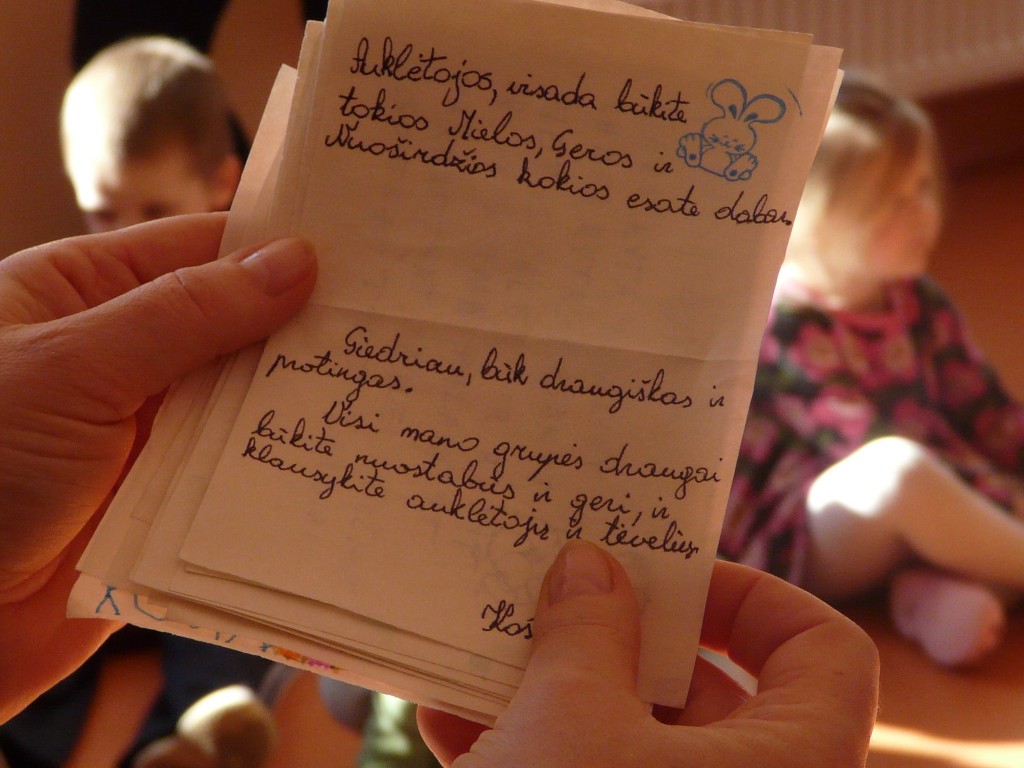 Auklėtojos, visada būkite
tokios Mielos, Geros ir
Nuoširdžios kokios esate dabar.
Giedriau, būk draugiškas ir
protingas.
Visi mano grupės draugai
būkite nuostabūs ir geri, ir
klausykite auklėtojų ir tėvelių.